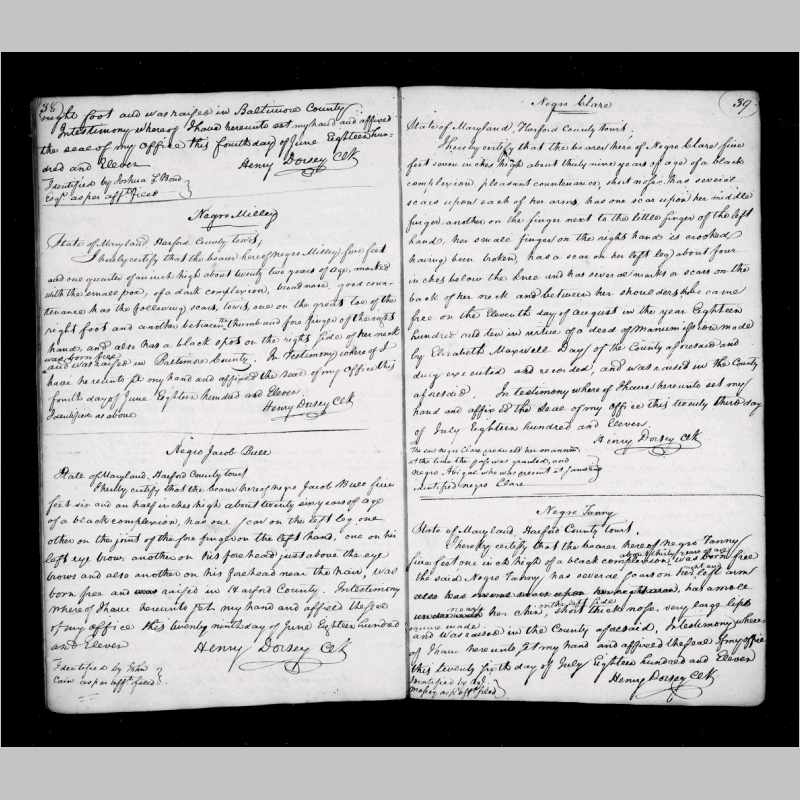 38
right foot and was raised in Baltimore County
In testimony whereof I have hereunto set my hand and affixed
the seal of my Office this fourth day of June Eighteen hun-
dred and Eleven Henry Dorsey Clk
Identified by Joshua Bond
Esqr. as per affd. filed
Negro Milley
State of Maryland Harford County Court,
I hereby certify that the bearer hereof Negro Milley five feet
and one quarter of an inch high about twenty two years of age, marked
with the small pox, of a dark complexion, good coun-
tenance has the following scars, towit, one on the great toe of the
right foot and another between the thumb and fore finger of the right
hand, and also has a black spot on the right side of her neck
was born free
and was raised in Baltimore County. In testimony whereof I
have hereunto set my hand and affixed the seal of my office this
fourth day of June Eighteen hundred and Eleven
Henry Dorsey Clk
Identified as above
Negro Jacob Bull
State of Maryland, Harford County Court
I hereby certify that the bearer hereof negro Jacob Bull five
feet six and an half inches high about twenty six years of age
of a black complexion, has one scar on the left leg one
other on the joint of the fore finger on the left hand, one on his
left eye brow another on his forehead just above the eye
brows and also another on his forehead near the hair, was
born free and was raised in Harford County. In testimony
whereof I have hereunto set my hand and affixed the seal
of my office this twenty ninth day of June Eighteen hundred
and Eleven Henry Dorsey Clk
Identified by John
Cain as per affd. filed
39
Negro Clare
State of Maryland, Harford County Court,
I hereby certify that the bearer hereof Negro Clare five
feet seven inches high about thirty nine years of age of a black
complexion, pleasant countenance, short nose, has several
scars upon each of her arms, has one scar upon her middle
finger another on the finger next to the little finger of the left
hand, her small finger on the right hand is crooked
having been broken, has a scar on her left leg about four
inches below the knee and has several marks or scars on the
back of her neck and between her shoulders, she came
free on the Eleventh day of August in the year Eighteen
hundred and ten in virtue of a deed of Manumission made
by Elizabeth Maxwell Day of the County aforesaid and
duly executed and recorded, and was raised in the County
aforesaid. In testimony whereof I have hereunto set my
hand and affixed the Seal of my office this twenty third day
of July Eighteen hundred and Eleven.
Henry Dorsey Clk
negro Clare produced her
at the time the pass was granted, and
negro Abigal who was present
identified negro Clare
Negro Fanny
State of Maryland, Harford County Court,
I hereby certify that the bearer hereof Negro Fanny
about thirty years of age
five feet one inch high of a black complexion, was born free
the said Negro Fanny has several scars on her left arm
right and
also has has a mole
near on the left side
under her chin, short thick nose, very large lips
square made.
and was raised in the County aforesaid. In testimony where-
of I have hereunto set my hand and affixed the seal of my office
this twenty fifth day of July Eighteen hundred and Eleven
Identified by Henry Dorsey Clk
as pr. affd. filed